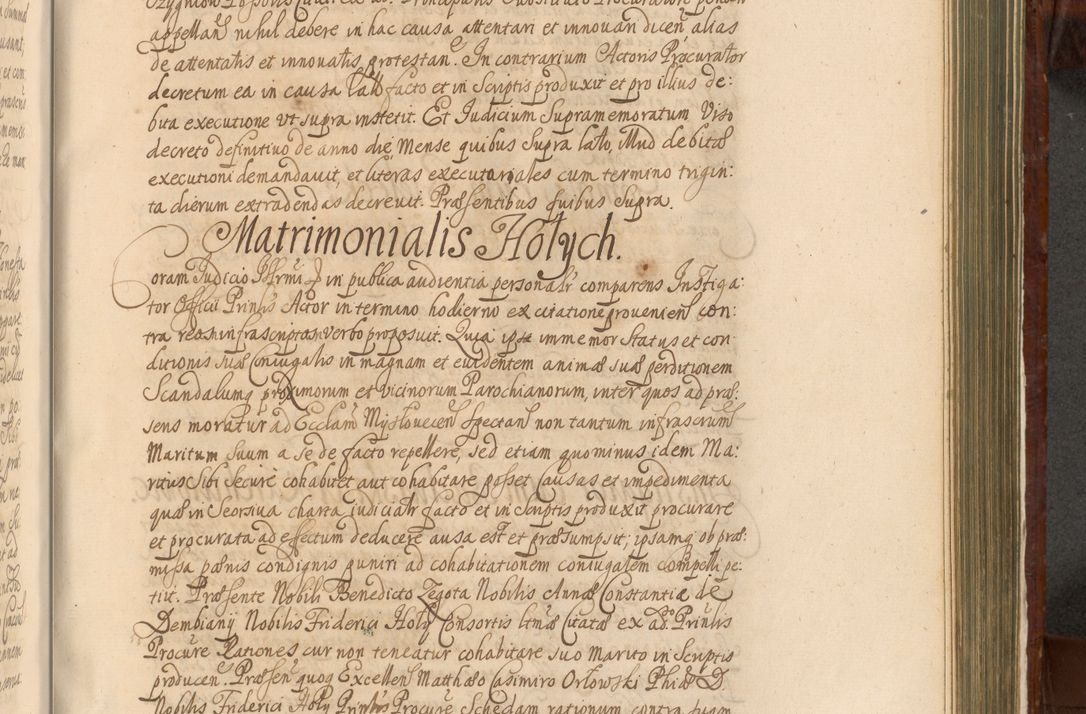 appellań nihil debere in hac causa attentari et innovari dicen alias
de attentatis et innovatis protestan. In contrarium Actoris Procurator
decretum ea in causa latt facto et in Scriptis produxit et pro illius de:
bita executione ut supra institit. Et Judicium Supramemoratum Viso
decreto definitivo de anno die Mense quibus Supra lato, illud debitæ
executioni demandavit, et literas executoriales cum termino trigin:
ta dierum extradendas decrevit. Præsentibus quibus Supra.
Matrimonialis Hołych.
Coram Judicio in publica audientia personalr comparens Instiga:
tor Officii Prinlis Actor in termino hodierno ex citatione provenien con:
tra reos infrascriptos verbo proposuit. Quia ipsa immemor Status et con
ditionis suæ Coniugalis in magnam et evidentem animæ suæ perditionem
Scandalumq proximorum et vicinorum Parochianorum, inter quos ad præ:
sens moratur ad Ecclam Mysłovecen Spectan non tantum infrascrum
Maritum Suum a se de facto repellere, sed etiam quominus idem Ma:
ritus Sibi Secure cohabitet aut cohabitare posset Causas et impedimenta
quæ in Seorsiva charta judicialr facto et in Scriptis produxit procurare
et procurata ad effectum deducere ausa est et præsumpsit; ipsamq ob præ:
missa pænis condignis puniri ad cohabitationem coniugalem compelli pe:
tiit. Præsente Nobili Benedicto Zegota Nobilis Annæ Constantiæ de
Dembiany Nobilis Friderici Hoły Consortis ltmæ Citatæ ex ad. Prinlis
Procure Rationes cur non teneatur cohabitare suo Marito in Scriptis
producen. Præsen quoq Excellen Matthæo Casimiro Orłowski Phiæ D.
Nobilis Friderici Hoły Prinlis Procure Schedam rationum contra suam